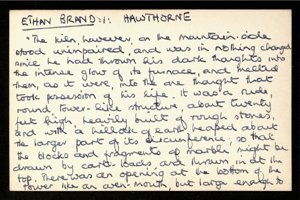 ETHAN BRAND :1: HAWTHORNE
"The kiln, however, on the mountain-side
stood unimpaired, and was in nothing changed
since he had thrown his dark thoughts into
the intense glow of its furnace, and melted
them, as it were, into the one thought that
took possession of his life. It was a rude,
round, tower-like structure, about twenty
feet high, heavily built of rough stones,
and with a hillock of earth heaped about
the larger part of its circumference; so that
the blocks and fragments of marble might be
drawn by cart-loads, and thrown in at the
top. There was an opening at the bottom of the
tower like an oven-mouth, but large enough to